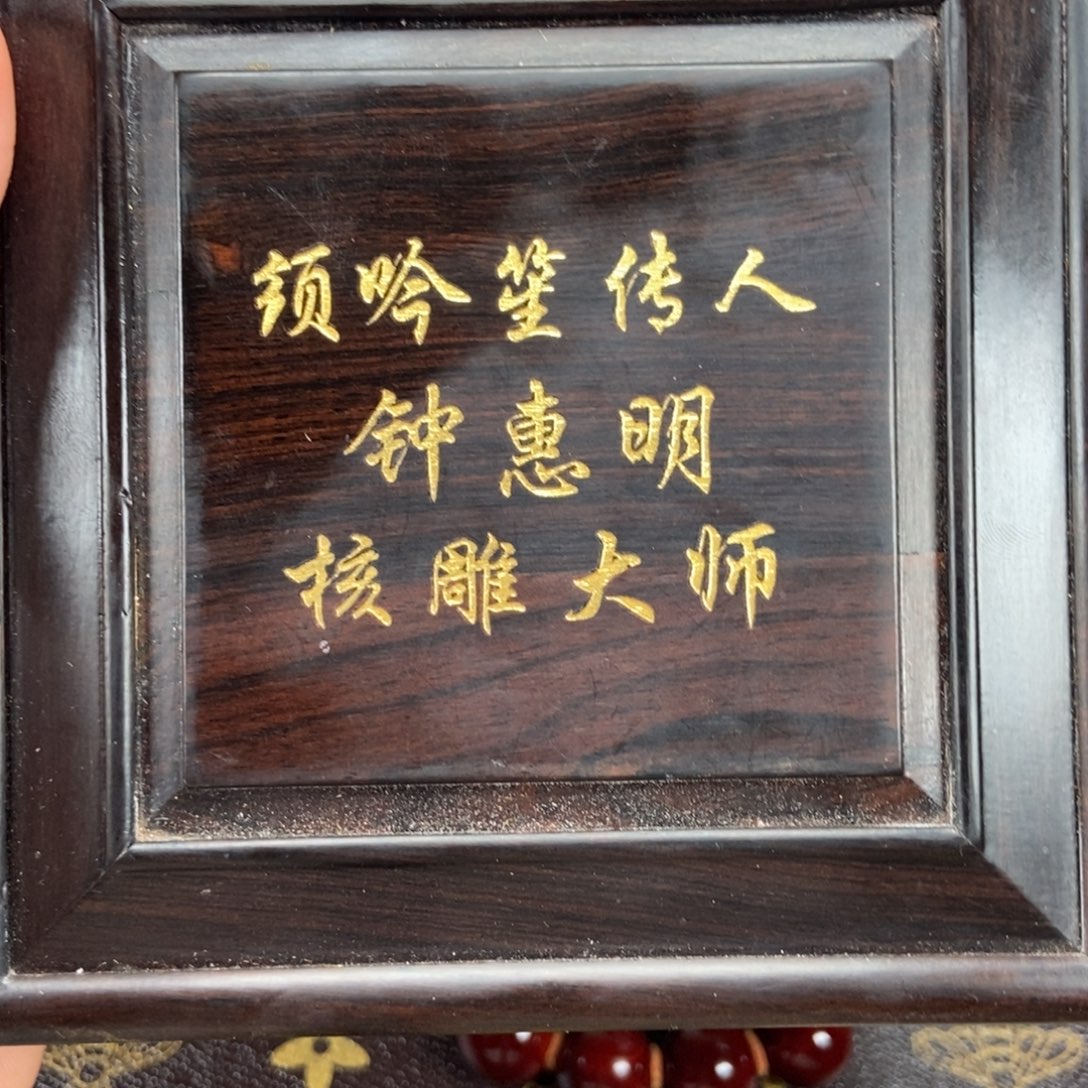 须吟笙传人
钟惠明
核雕大师